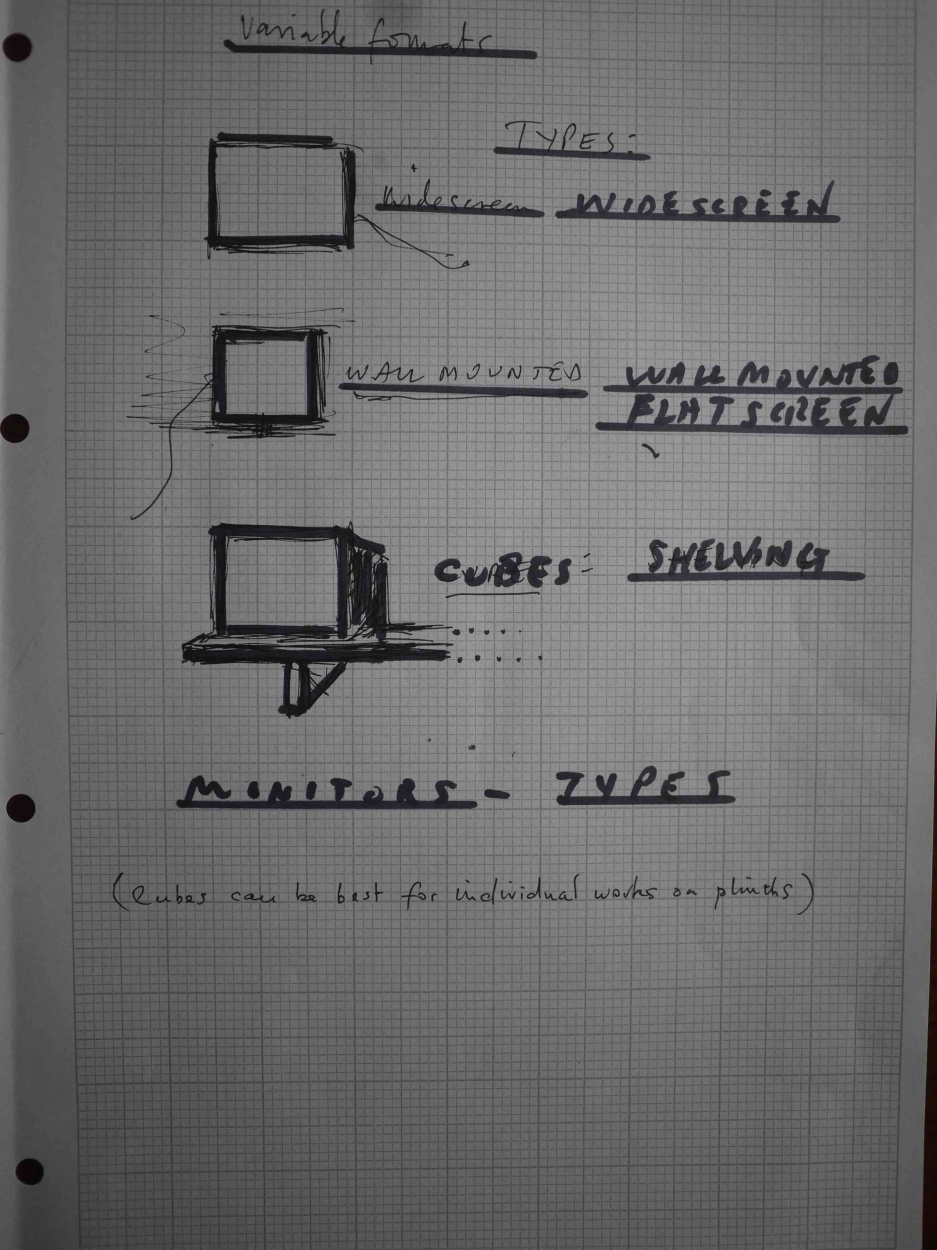 Variable formats
TYPES:
widescreen WIDESCREEN
WALL MOUNTED WALL MOUNTED
FLATSCREEN
CUBES: SHELVING
MONITORS - TYPES
(Cubes can be best for individual works on plinths)